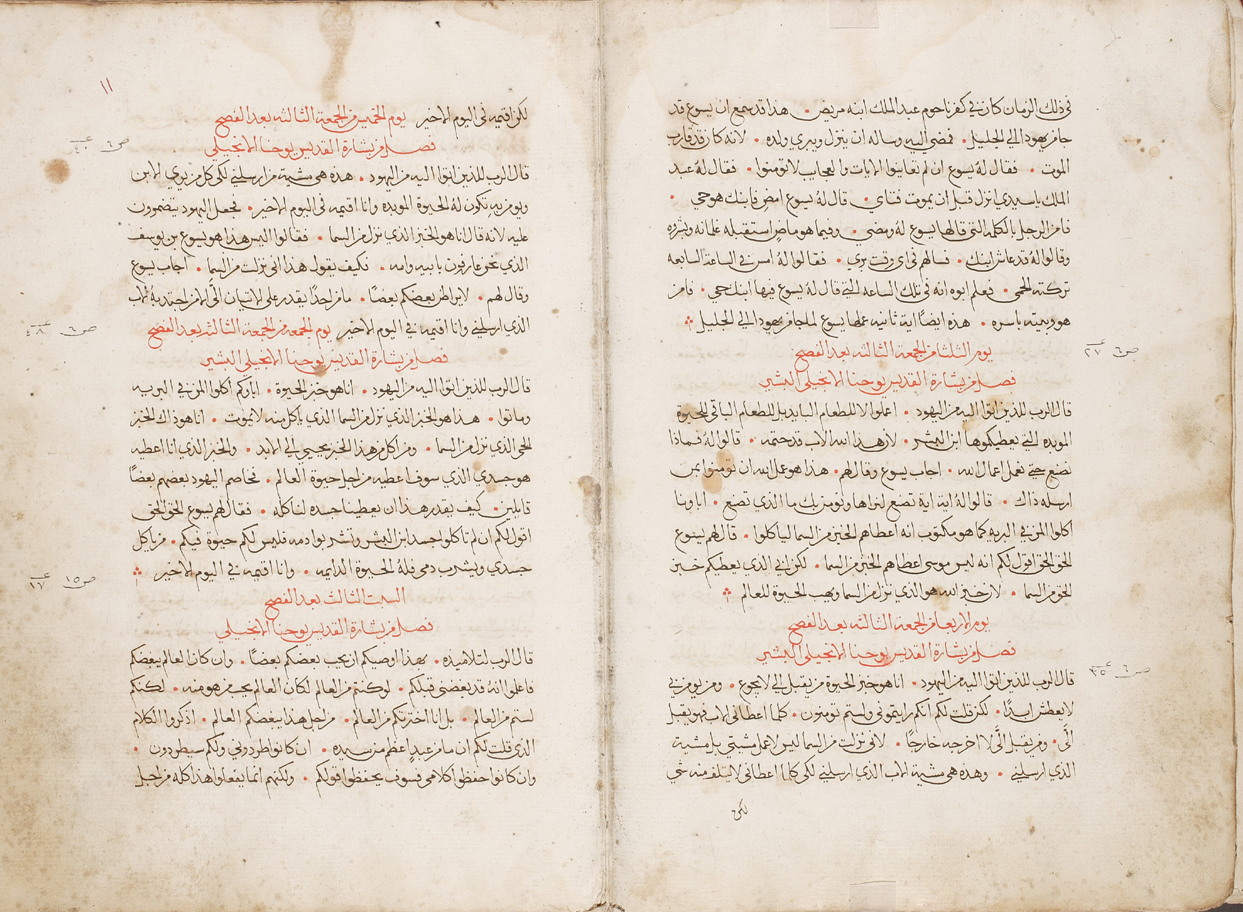 في ذلك الزمان كان في كفرناحوم عبد الملك ابنه مريض • هذا قد سمع ان يسوع قد
جا من يهودا الي الجليل • فمضي اليه وساله ان ينزل ويبري ولده • لانه كان قد قارب
الموت • فقال له يسوع ان لم تعاينوا الايات والعجايب لا تومنوا • فقال له عبد
الملك ياسيدي انزل قبل ان يموت فتاي • قال له يسوع امض فابنك هو حي •
فامن الرجل بالكلمه التي قالها يسوع له ومضي • وفيما هو ماض استقبله غلمانه وبشروه
وقالوا له قد عاش ابنك • فسالهم في اي وقت بري • فقالوا له امس في الساعه السابعه
تركته الحمي • فعلم ابوه انه في تلك الساعه التي قال له يسوع فيها ابنك حي • فامن
هو وبيته باسره • هذه ايضًا اية ثانيه عملها يسوع لما جا من يهودا الي الجليل
يوم الثلثا من الجمعة الثالثه بعد الفصح
ص٦ عـ ٢٧
فصل من بشارة القديس يوحنا الانجيلي البشير
قال الرب للذين اتوا اليه من اليهود • اعملوا لا للطعام البايد بل للطعام الباقي للحيوة
الموبده التي يعطيكموها ابن البشر • لان هذا الله الاب قد ختمه • قالوا له فماذا
نصنع حتي نعمل اعمال الله • اجاب يسوع وقال لهم • هذا هو عمل الله ان تومنوا بمن
ارسله ذاك • قالوا له اية اية تصنع لنراها ونومن بك ما الذي تصنع • اباونا
اكلوا المن في البريه كما هو مكتوب انه اعطاهم الخبز من السما لياكلوا • قال لهم يسوع
الحق الحق اقول لكم انه ليس موسي اعطاهم الخبز من السما • لكن ابي الذي يعطيكم خبز
الحق من السما • لان خبز الله هو الذي نزل من السما ويهب الحيوة للعالم
يوم الاربعا من الجمعة الثالثه بعد الفصح
فصل من بشارة القديس يوحنا الانجيلي البشير
ص٦ عـ ٣٥
قال الرب للذين اتوا اليه من اليهود • انا هو خبز الحيوة من يقبل الي لا يجوع • ومن يومن بي
لا يعطش ابدًا • لكن قلت لكم انكم رايتموني ولستم تومنون • كلما اعطاني الاب فهو يقبل
الَّي • ومن يقبل الَّي لا اخرجه خارجًا • لاني نزلت من السما ليس لاعمل مشيتي بل مشية
الذي ارسلني • وهذه هي مشية الاب الذي ارسلني لكي كلما اعطاني لا يتلف منه شي
لكن
١١
لكن اقيمه في اليوم الاخير يوم الخميس من الجمعة الثالثه بعد الفصح
ص٦ عـ ٤٠
فصل من بشارة القديس يوحنا الانجيلي
قال الرب للذين اتوا اليه من اليهود • هذه هي مشية من ارسلني لكي كل من يري الابن
ويومن به تكون له الحيوة الموبده وانا اقيمه في اليوم الاخير • فجعل اليهود يتضمرون
عليه لانه قال انا هو الخبز الذي نزل من السما • فقالوا اليس هذا هو يسوع بن يوسف
الذي نحن عارفون بابيه وامه • فكيف يقول هذا اني نزلت من السما • اجاب يسوع
وقال لهم • لا يراطن بعضكم بعضًا • ما من احدًا يقدر علي الاتيان الَّي الا من اجتدبه الاب
الذي ارسلني وانا اقيمه في اليوم الاخير يوم الجمعة من الجمعة الثالثه بعد الفصح
ص٦ عـ ٤٨
فصل من بشارة القديس يوحنا الانجيلي البشير
قال الرب للذين اتوا اليه من اليهود • انا هو خبز الحيوة • اباوكم اكلوا المن في البريه
وماتوا • هذا هو الخبز الذي نزل من السما الذي ياكل منه لا يموت • انا هو ذاك الخبز
الحي الذي نزل من السما • ومن اكل من هذا الخبز يحيي الي الابد • والخبز الذي انا اعطيه
هو جسدي الذي سوف اعطيه من اجل حيوة العالم • فخاصم اليهود بعضهم بعضًا
قايلين • كيف يقدر هذا ان يعطينا جسده لناكله • فقال لهم يسوع الحق الحق
اقول لكم ان لم تاكلوا جسد ابن البشر وتشربوا دمه فليس لكم حيوة فيكم • من ياكل
جسدي ويشرب دمي فله الحيوة الدايمه • وانا اقيمه في اليوم الاخير •
ص١٥ عـ ١٧
السبت الثالث بعد الفصح
فصل من بشارة القديس يوحنا الانجيلي
قال الرب لتلاميذه • بهذا اوصيكم ان يحب بعضكم بعضًا • وان كان العالم يبغضكم
فاعلموا انه قد بغضني قبلكم • لو كنتم من العالم لكان العالم يحب من هو منه • لكنكم
لستم من العالم • بل انا اخترتكم من العالم • من اجل هذا يبغضكم العالم • اذكروا الكلام
الذي قلت لكم ان ما من عبدٍ اعظم من سيده • ان كانوا طردوني ولكم سيطردون •
وان كانوا حفظوا كلامي فسوف يحفظوا قولكم • ولكنهم انما يفعلوا هذا كله من اجل